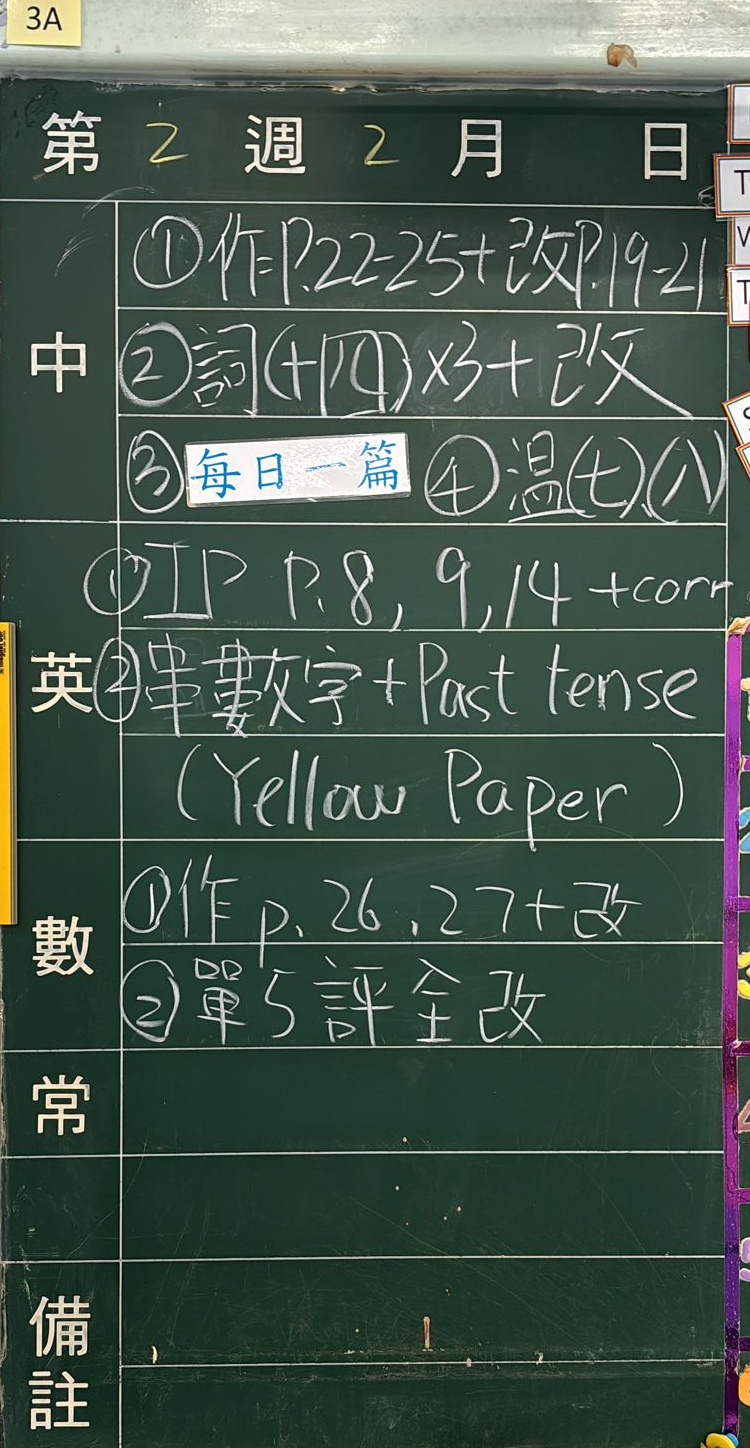 3A
第 2 週 2 月 日
中
①作=P.22-25+改P.19-21
②詞(十四)×3+改
③每日一篇 ④溫(七)、(八)
英
① IP P.8, 9, 14 +corr
②串數字+Past tense
(Yellow Paper)
數
①作 p. 26 , 27+改
②單5評全改
常
備註